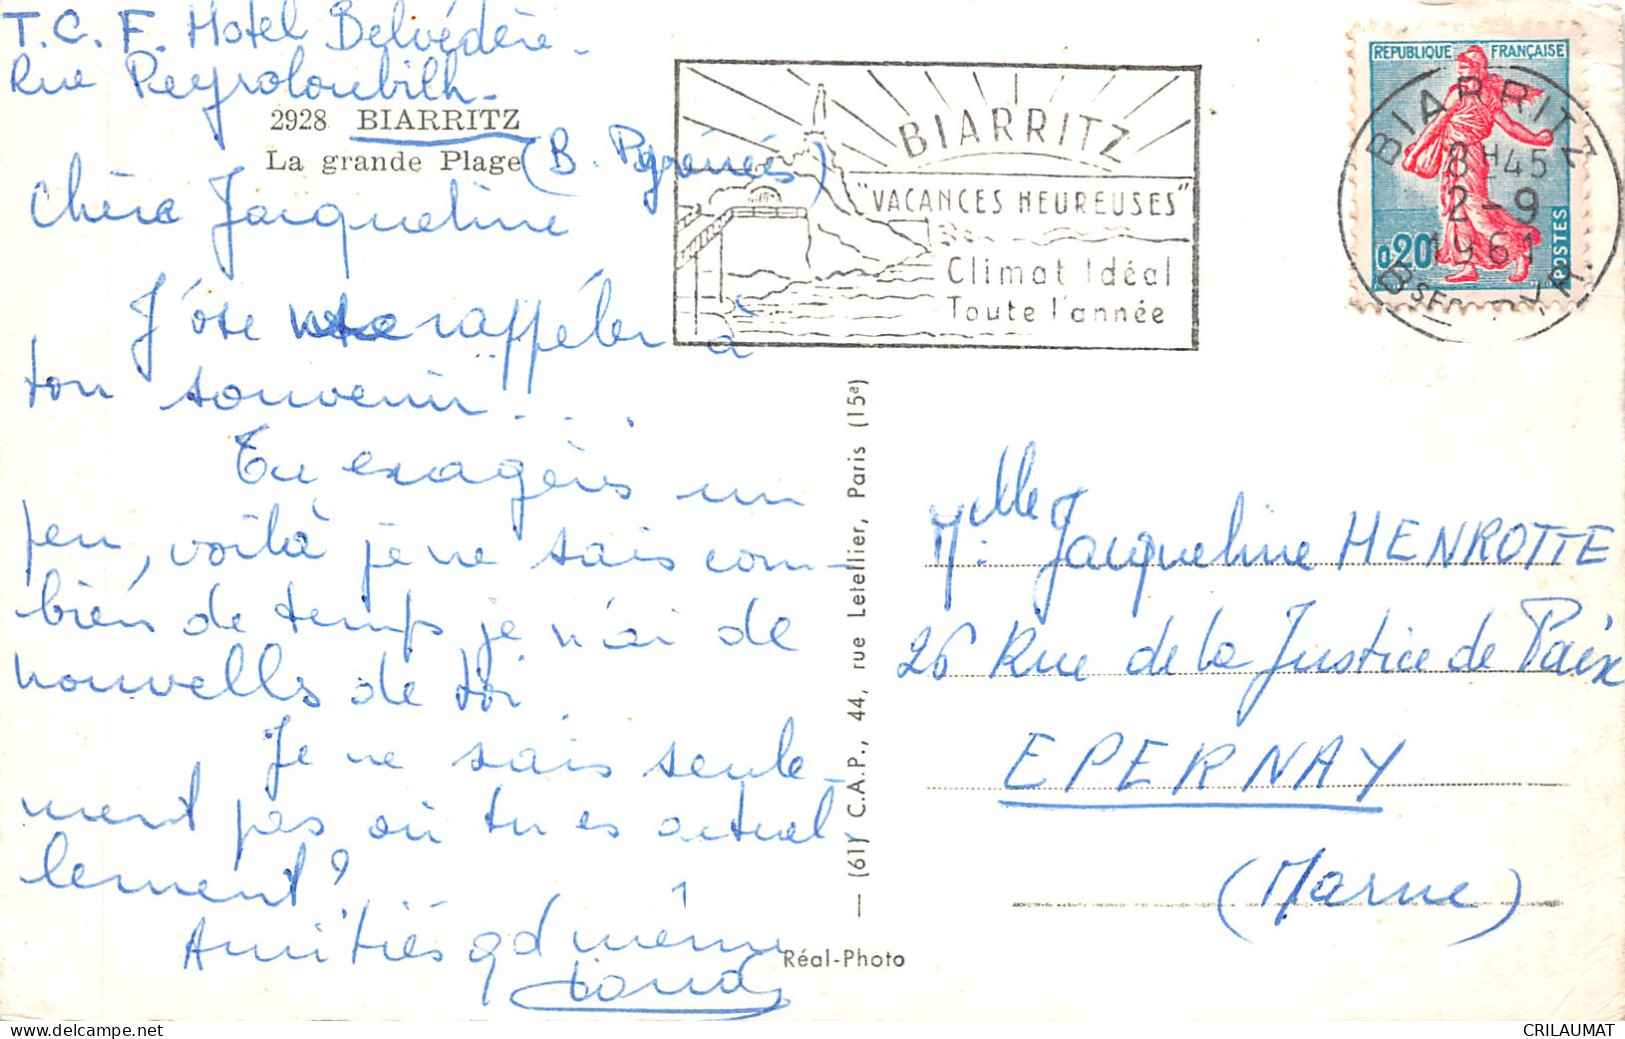 T.C.F. Hotel Belvédère -
Rue Peyroloubilh -
2928 BIARRITZ
La grande Plage (B. Pyrénées)
Chère Jacqueline
J'ose me rappeler à
ton souvenir . . .
Tu exagères un
peu, voilà je ne sais com-
bien de temps je n'ai de
nouvelles de toi.
Je ne sais seule-
ment pas où tu es actuel-
lement ?
Amitiés qd même
BIARRITZ
"VACANCES HEUREUSES"
Climat Idéal
Toute l'année
REPUBLIQUE FRANÇAISE
0,20
POSTES
BIARRITZ
8H45
2-9
1961
(61) C.A.P., 44, rue Letellier, Paris (15e)
Réal-Photo
Mlle Jacqueline HENROTTE
26 Rue de la Justice de Paix
EPERNAY
(Marne)
CRILAUMAT